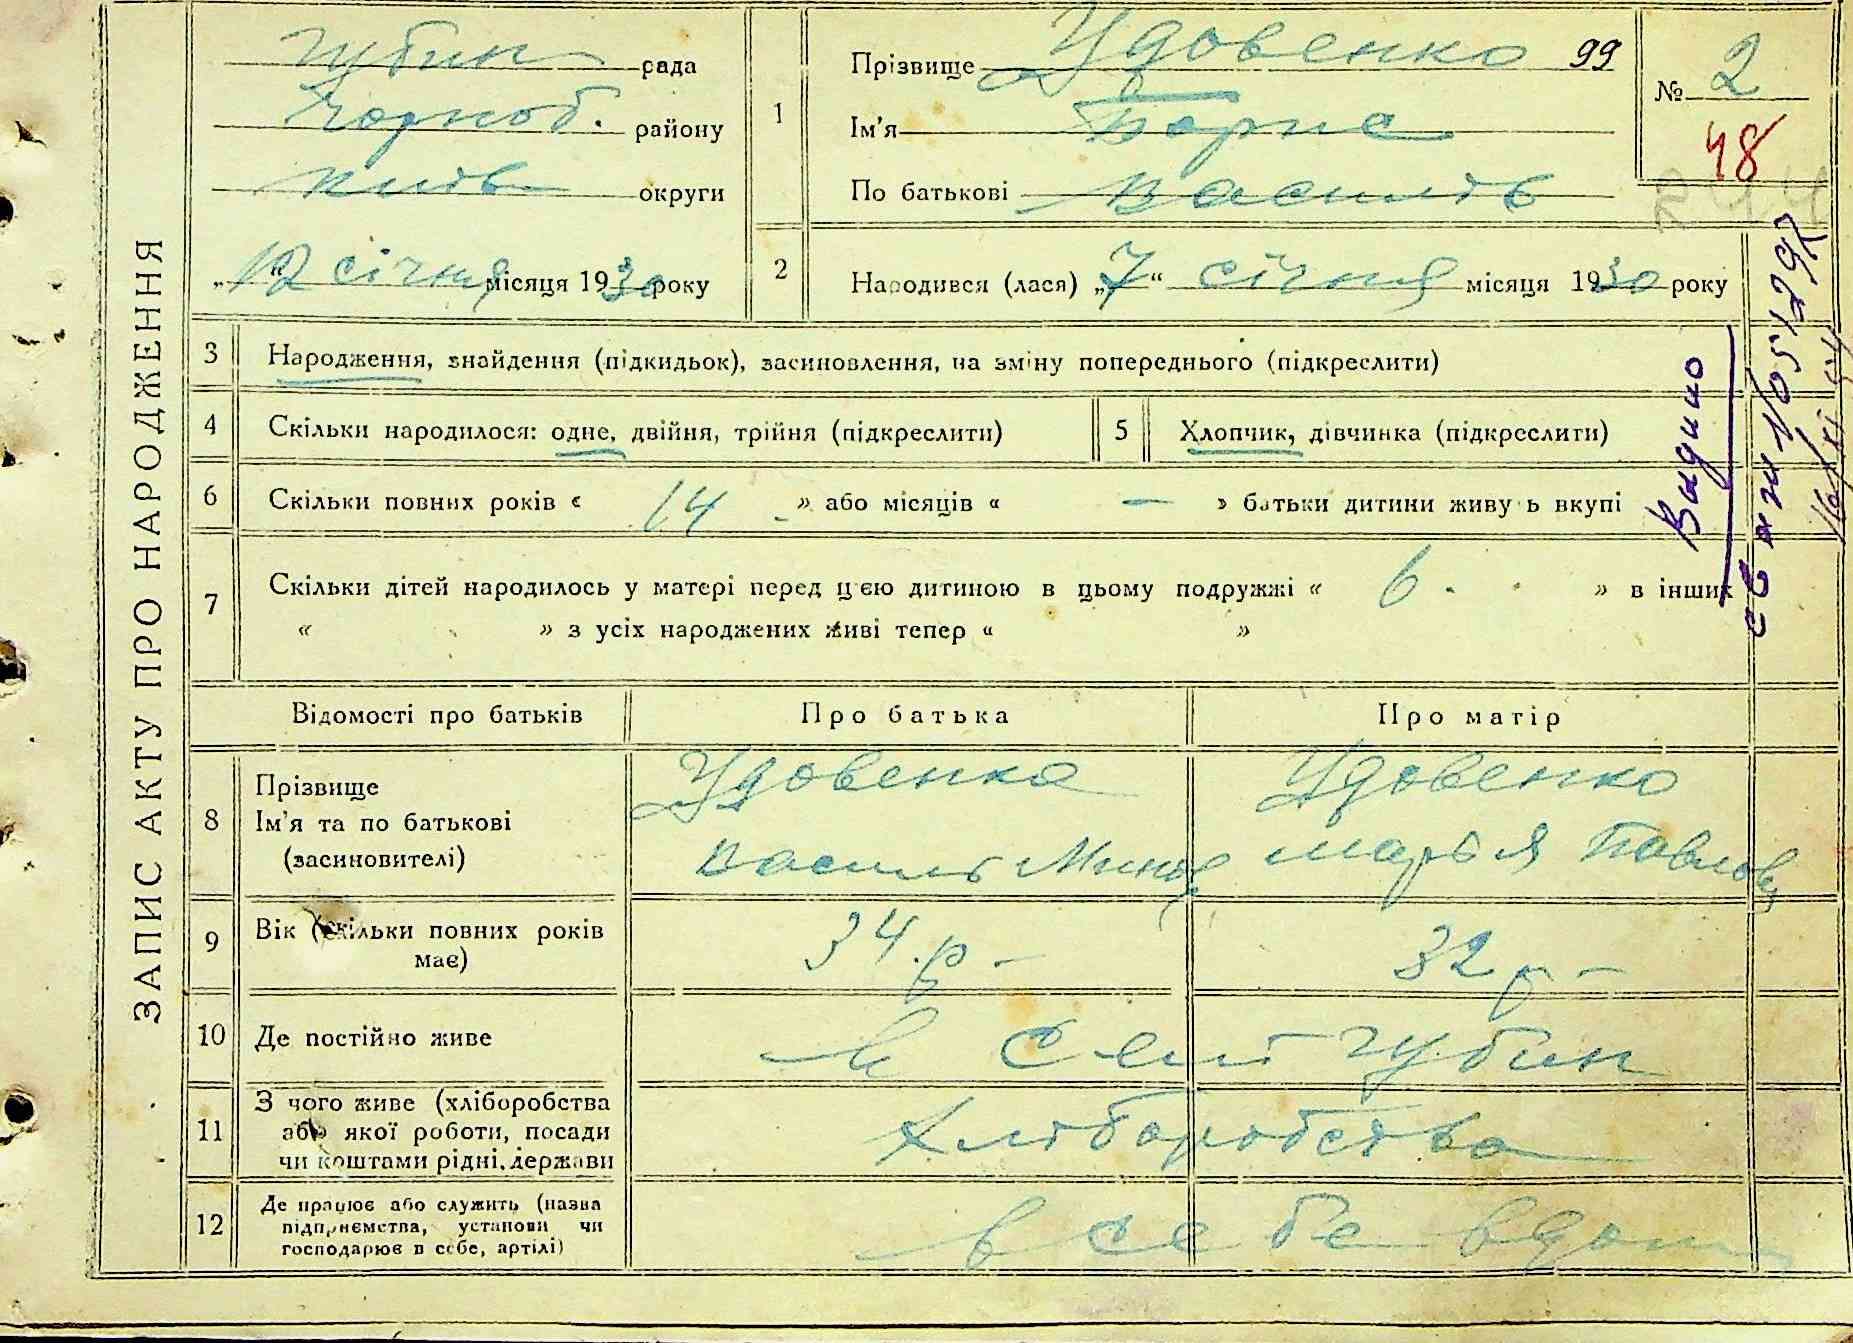 ЗАПИС АКТУ ПРО НАРОДЖЕННЯ
Губин рада
Чорноб. району
Київ округи
„12“ січня місяця 1930 року
1
Прізвище Удовенко 99
Ім'я Борис
По батькові Василів
№ 2
48
244
2
Народився (лася) „7“ січня місяця 1930 року
3 Народження, знайдення (підкидьок), засиновлення, на зміну попереднього (підкреслити)
4 Скільки народилося: одне, двійня, трійня (підкреслити)
5 Хлопчик, дівчинка (підкреслити)
6 Скільки повних років « 14 » або місяців « — » батьки дитини живуть вкупі
7 Скільки дітей народилось у матері перед цією дитиною в цьому подружжі « 6. » в інших
« » з усіх народжених живі тепер « »
Видано
Відомості про батьків Про батька Про матір
8 Прізвище
Ім'я та по батькові
(засиновителі)
Удовенко
Василь
Удовенко
Марія Павлов
9 Вік (скільки повних років
має)
34 р – 32 р –
10 Де постійно живе в селі Губин
11 З чого живе (хліборобства
або якої роботи, посади
чи коштами рідні, держави
Хліборобства
12 Де працює або служить (назва
підприємства, установи чи
господарює в себе, артілі)
в себе вдома